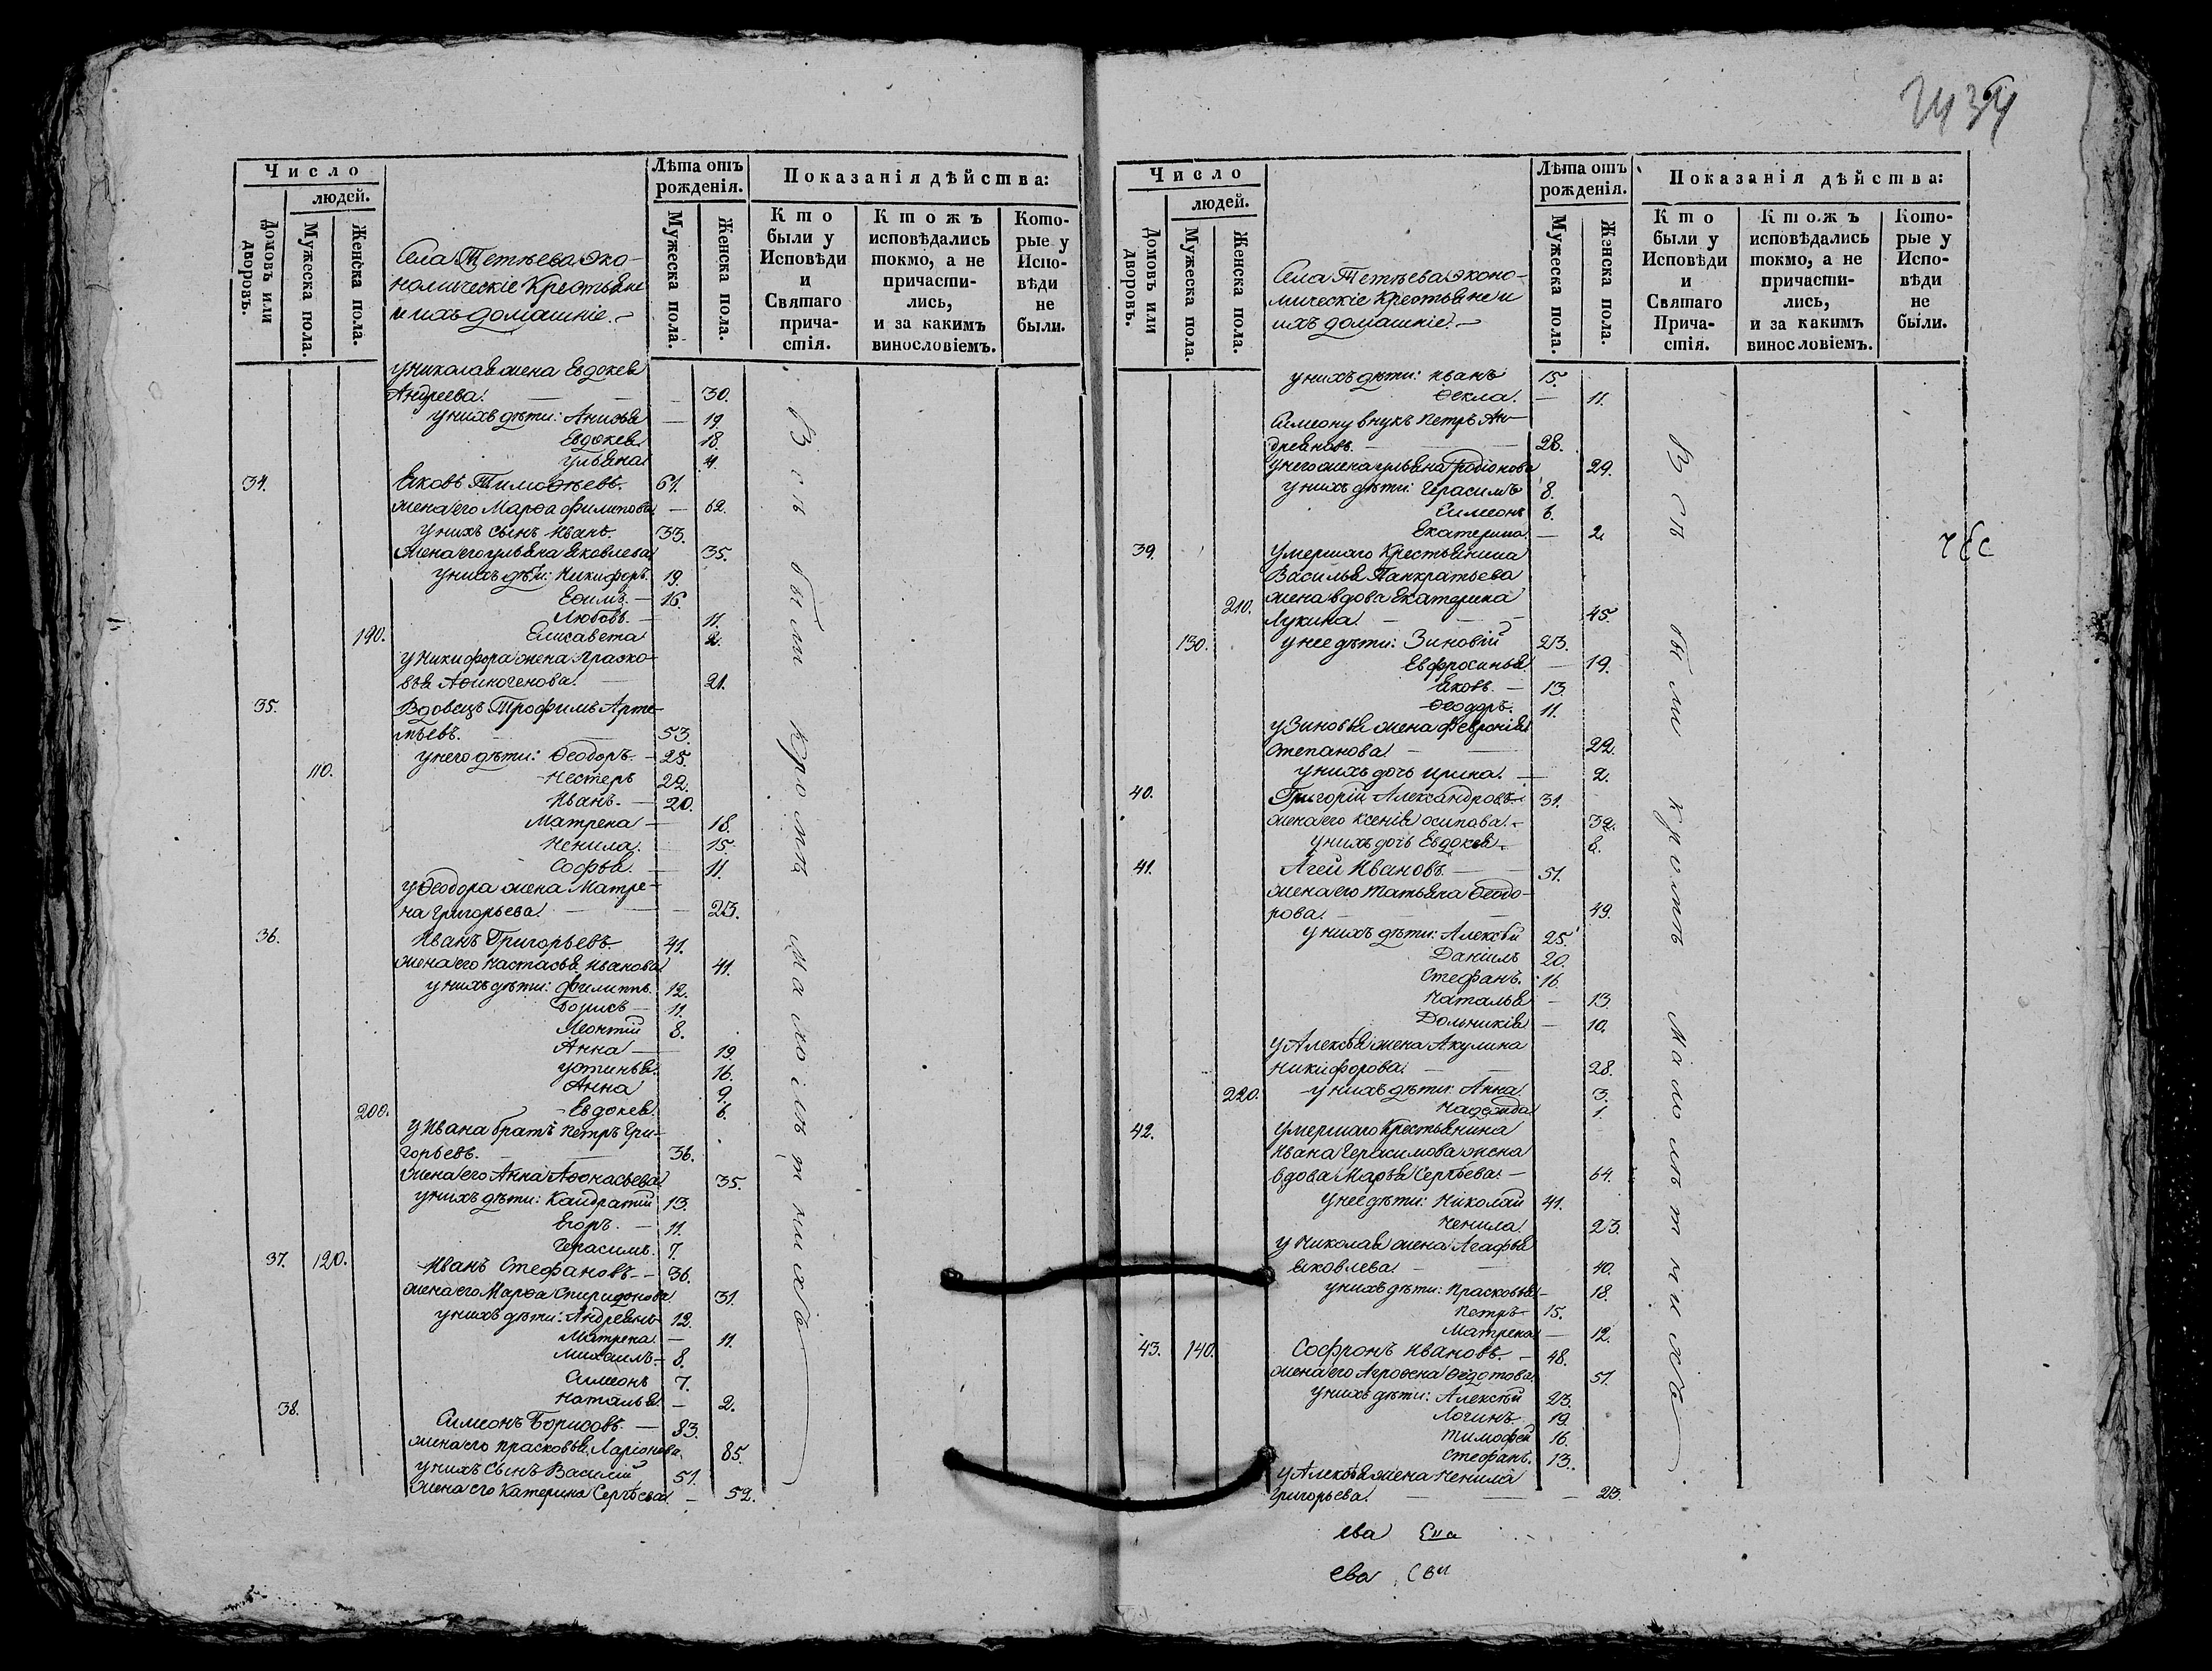 2434
Число
людей.
Домовъ или дворовъ.
Мужеска пола.
Женска пола.
Села Тетѣева эко-
номическіе Крестьяне
и ихъ домашніе.
Лѣта отъ
рожденія.
Мужеска пола.
Женска пола.
Показанія дѣйства:
Кто
были у
Исповѣди
и
Святаго
прича-
стія.
Ктожъ
исповѣдались
токмо, а не
причасти-
лись,
и за каким
винословіемъ.
Кото-
рые у
Испо-
вѣди
не
были.
у Николая жена Евдокея
Андреева. 30.
у нихъ дѣти: Анисья 19.
Евдокея 18.
Ульяна 4.
34. Яковъ Тимоѳѣевъ. 61.
жена его Марѳа Филипова 62.
у нихъ сынъ Иванъ. 33.
жена его Ульяна Яковлева 35.
у нихъ дѣти: Никифоръ. 19.
Ефимъ. 16.
Любовь. 11.
190. Елисавета 2.
у Никифора жена Праско-
вья Аѳиногенова. 21.
35. Вдовецъ Трофимъ Арте-
мьевъ. 53.
у него дѣти: Ѳеодоръ. 25.
110. Нестеръ 22.
Иванъ. 20.
Матрена 18.
Ненила. 15.
Софья. 11.
у Ѳеодора жена Матре-
на Григорьева. 23.
36. Иванъ Григорьевъ 41.
жена его Настасья Иванова 41.
у нихъ дѣти: Филиппъ. 12.
Борисъ 11.
Леонтій 8.
Анна 19.
Устинья. 16.
Анна 9.
200. Евдокея. 6.
у Ивана братъ Петръ Гри-
горьевъ. 36.
жена его Анна Аѳонасьева 35.
у нихъ дѣти: Кандратій 13.
Егоръ. 11.
Герасимъ. 7.
37. 120. Иванъ Стефановъ. 36.
жена его Марѳа Спиридонова 31.
у нихъ дѣти: Андреянъ 12.
Матрена. 11.
Михаилъ 8.
Симеонъ 7.
Наталья 2.
38. Симеонъ Борисовъ. 83.
жена его Прасковья Ларіонова 85.
у нихъ сынъ Василій 51.
жена его Катерина Сергѣева. 52.
Всѣ были кромѣ малолѣтнихъ
Число
людей.
Домовъ или дворовъ.
Мужеска пола.
Женска пола.
Села Тетѣева эконо-
мическіе Крестьяне и
ихъ домашніе.
Лѣта отъ
рожденія.
Мужеска пола.
Женска пола.
Показанія дѣйства:
Кто
были у
Исповѣди
и
Святаго
Прича-
стія.
Ктожъ
исповѣдались
токмо, а не
причасти-
лись,
и за каким
винословіемъ.
Кото-
рые у
Испо-
вѣди
не
были.
у нихъ дѣти: Иванъ 15.
Ѳекла. 11.
Симеону внукъ Петръ Ан-
дреяновъ. 28.
у него жена Ульяна Родіонова 29.
у нихъ дѣти: Герасимъ 8.
Симеонъ 6.
Екатерина. 2.
39. Умершаго Крестьянина
Василья Панкратьева
210. жена вдова Екатерина
Лукина. 45.
130. у нее дѣти: Зиновій 23.
Евфросинья 19.
Яковъ. 13.
Ѳеодоръ. 11.
у Зиновья жена Февронія
Степанова. 22.
у нихъ дочь Ирина. 2.
40. Григорій Александровъ. 31.
жена его Ксенія Осипова. 32.
у нихъ дочь Евдокея. 6.
41. Агей Ивановъ. 51.
жена его Татьяна Ѳеодо-
рова. 49.
у нихъ дѣти: Алексѣй 25.
Даніилъ 20.
Стефанъ. 16.
Наталья 13.
Дольникія 10.
у Алексѣя жена Акулина
Никифорова. 28.
220. у нихъ дѣти: Анна. 3.
Надежда 1.
42. Умершаго Крестьянина
Ивана Герасимова жена
вдова Марья Сергѣева. 64.
у нее дѣти: Николай 41.
Ненила. 23.
у Николая жена Агафья
Яковлева. 40.
у нихъ дѣти: Прасковья 18.
Петръ 15.
Матрена 12.
43. 140. Софронъ Ивановъ. 48.
жена его Агроѳена Ѳедотова. 51.
у нихъ дѣти: Алексѣй 23.
Логинъ. 19.
Тимофей 16.
Стефанъ. 13.
у Алексѣя жена Ненила
Григорьева. 23.
Всѣ были кромѣ малолѣтнихъ
ева
ева